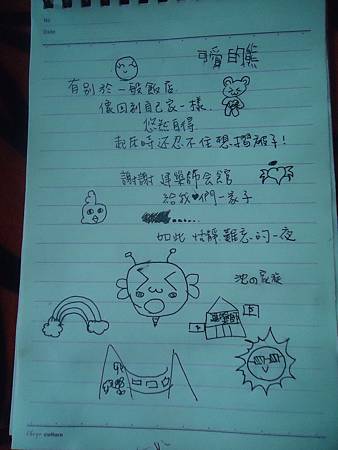 No
Date
可愛的熊
有別於一般飯店
像回到自己家一樣
悠然自得
起床時還忍不住想摺被子!
謝謝 建築師会館
給我♥們一家子
......
如此 恬靜 難忘 的一夜
沈の家族